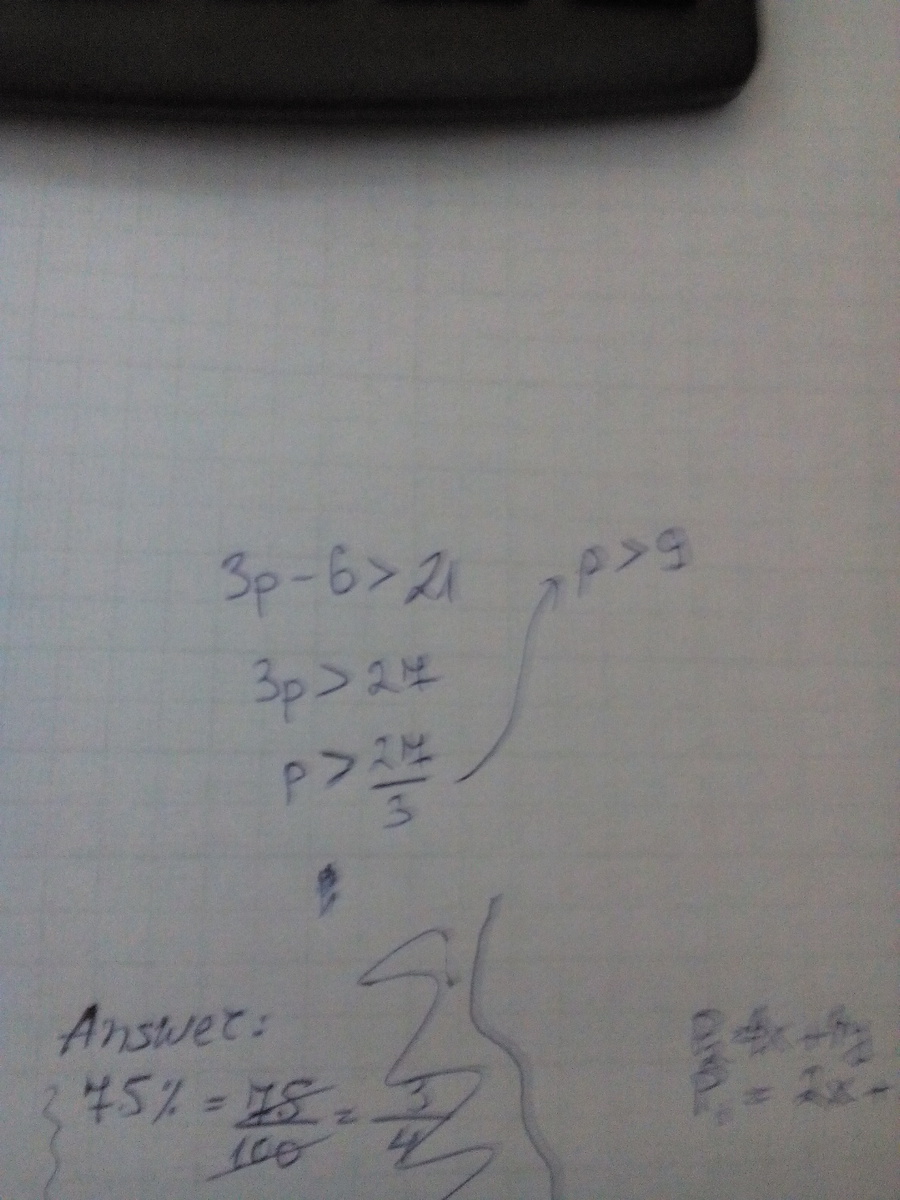 3p - 6 > 21
3p > 27
p > 27/3
p > 9
Answer:
75% = 75/100 = 3/4
= 2x -